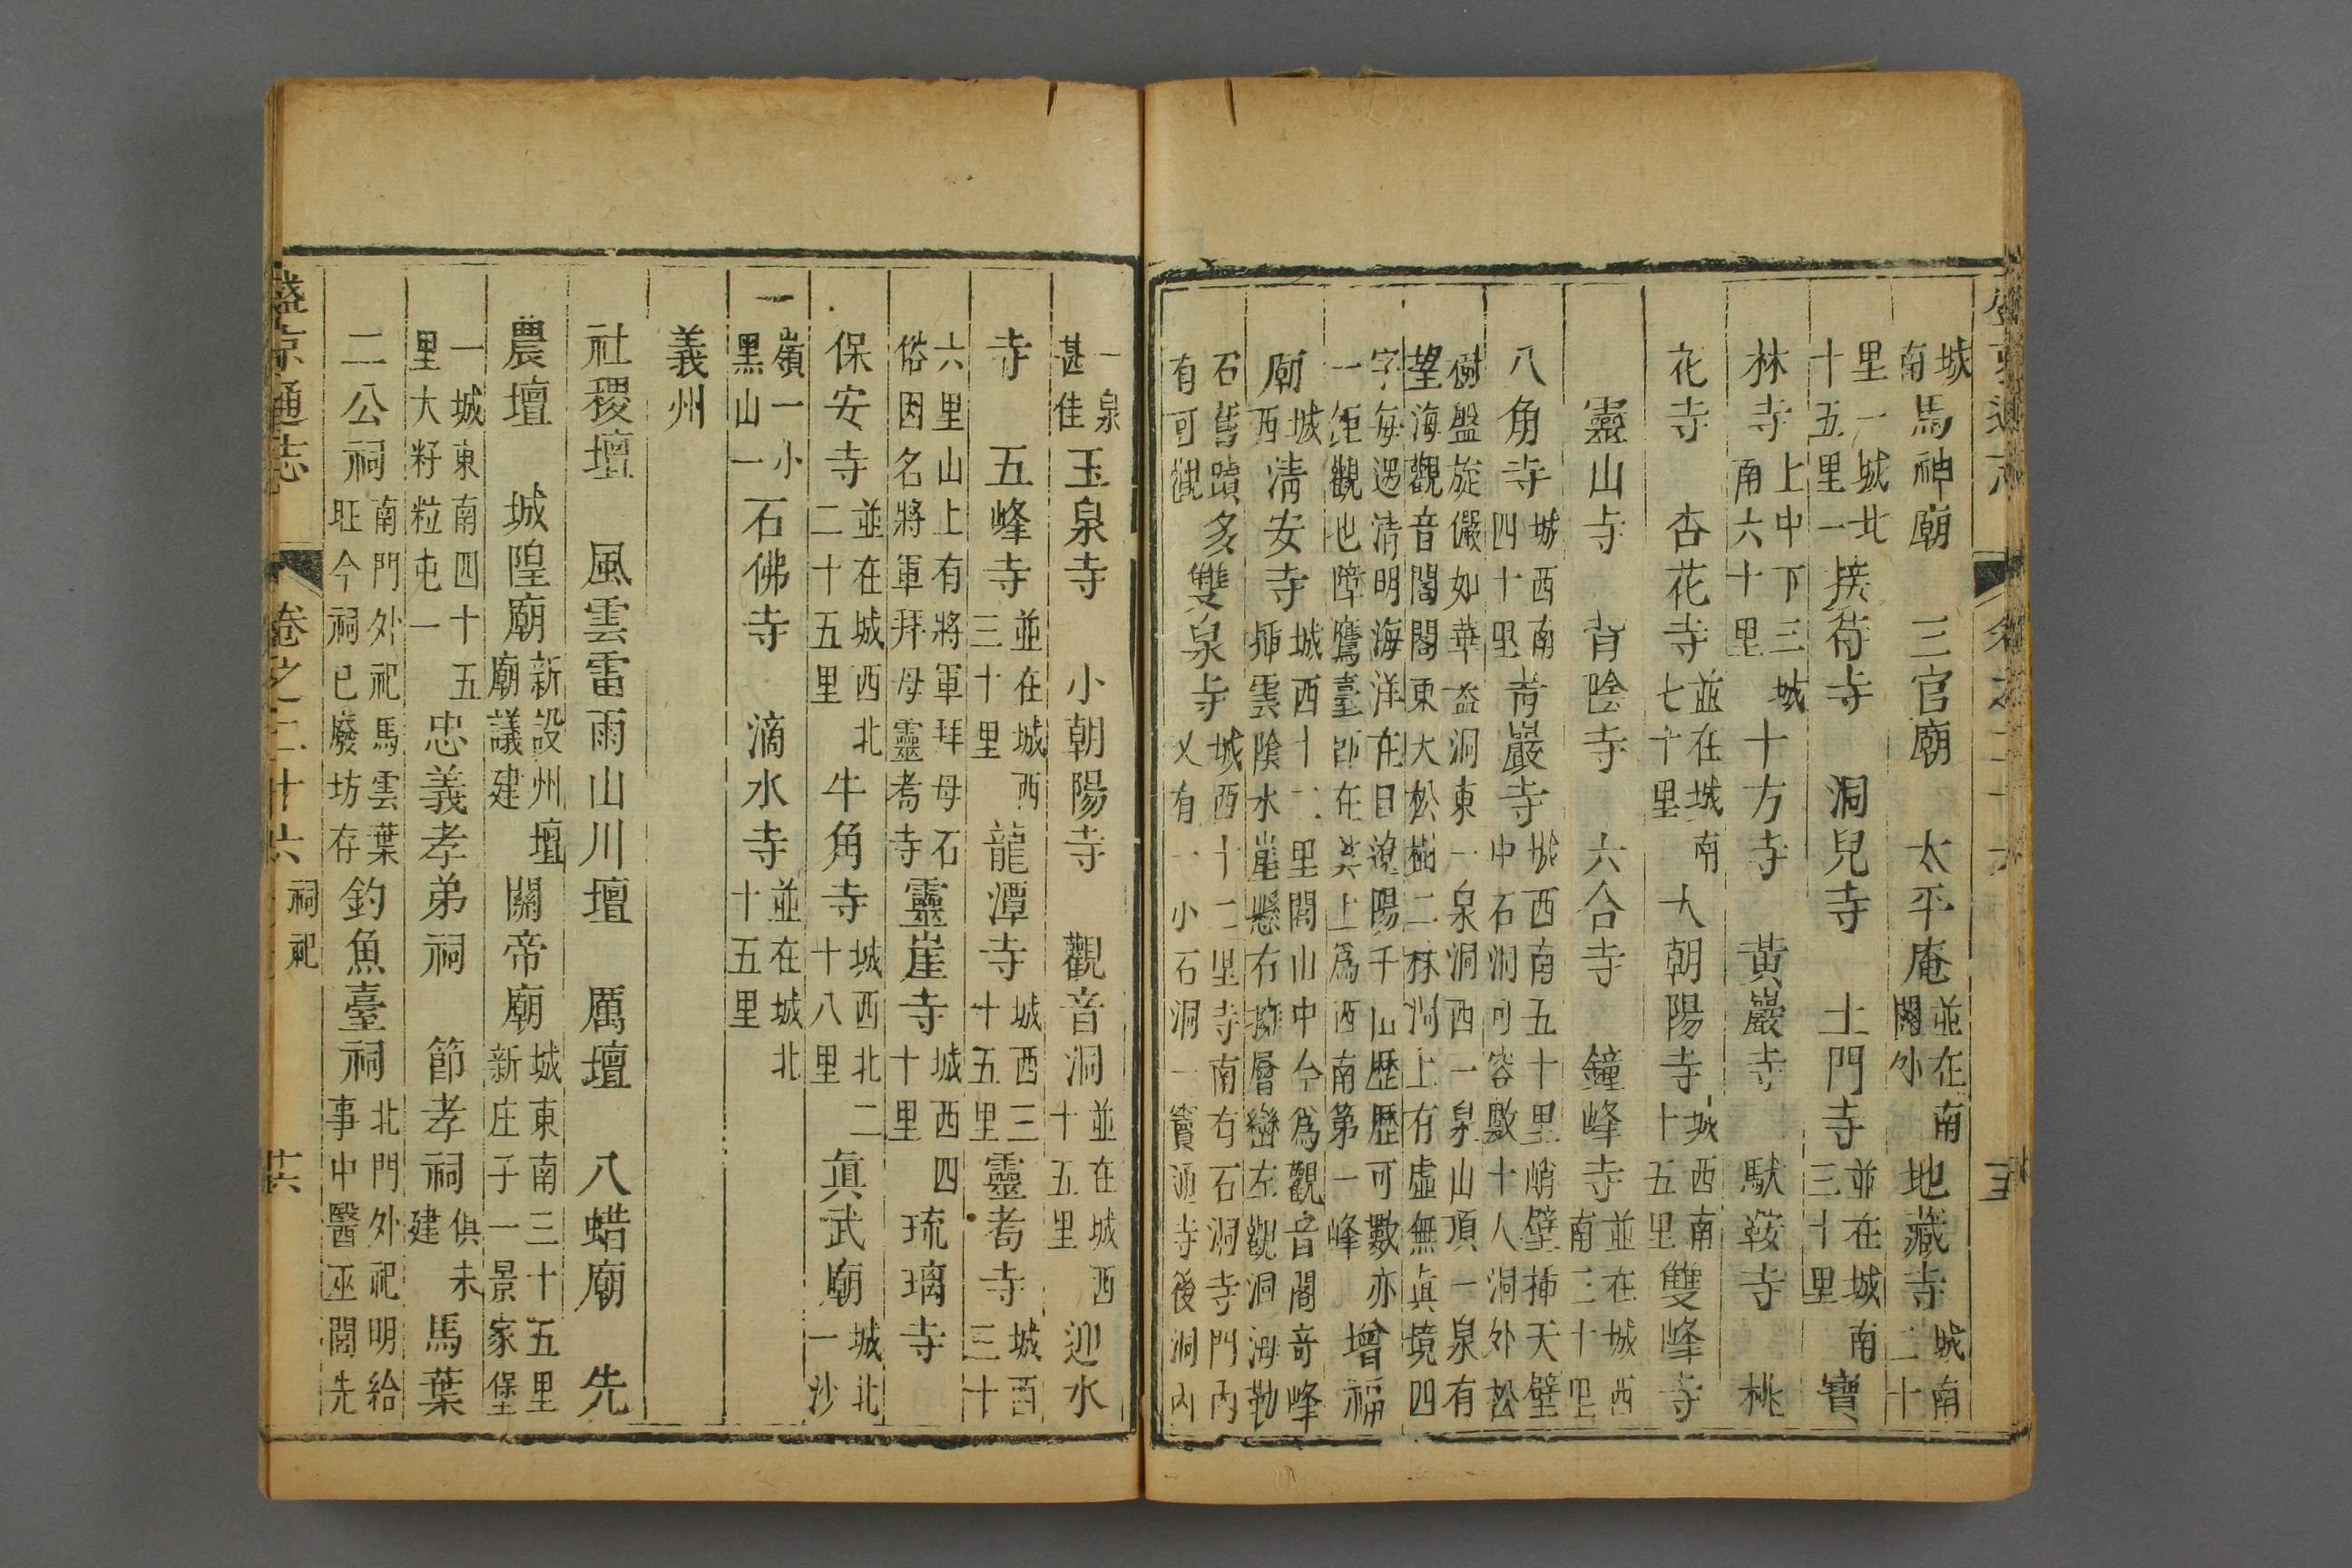 城南馬神廟　三官廟　太平庵並在南關外地藏寺城南二十
里一城北十五里一挨苻寺　洞兒寺　土門寺並在城南三十里寶
林寺上中下三城南六十里十方寺　黃巖寺　馱鞍寺　桃
花寺　杏花寺並在城南七十里大朝陽寺城西南十五里雙峰寺
靈山寺　背陰寺　六合寺　鐘峰寺並在城西南三十里
八角寺城西南四十里青巖寺城西南五十里峭壁揷天壁中石洞可容數十人洞外松
樹盤旋儼如華葢洞東一泉洞西一泉山頂一泉有望海觀音閣閣東大松樹二株澗上有虛無眞境四
字每遇清明海洋在目遼陽千山歷歷可數亦一鉅觀也障鷹臺卽在其上爲西南第一峰增福
廟城西清安寺城西十二里閭山中台爲觀音閣奇峰揷雲陰水崖懸右擁層巒左觀洞海勒
石舊蹟多有可觀雙泉寺城西十二里寺南有石洞寺門內又有一小石洞一竇通寺後洞內
一泉甚佳玉泉寺　小朝陽寺　觀音洞並在城西十五里迎水
寺　五峰寺並在城西三十里龍潭寺城西三十五里靈耉寺城西三十
六里山上有將軍拜母石俗因名將軍拜母靈耉寺靈崖寺城西四十里琉璃寺
保安寺並在城西北二十五里牛角寺城西北二十八里眞武廟城北一沙
嶺一小黑山一石佛寺　滴水寺並在城北十五里
義州
社稷壇　風雲雷雨山川壇　厲壇　八蜡廟　先
農壇　城隍廟新設州壇廟議建關帝廟城東南三十五里新庄子一景家堡
一城東南四十五里大籽粒屯一忠義孝弟祠　節孝祠俱未建馬葉
二公祠南門外祀馬雲葉旺今祠已廢坊存釣魚臺祠北門外祀明給事中醫巫閭先
盛京通志　卷之二十六　祠祀　十六